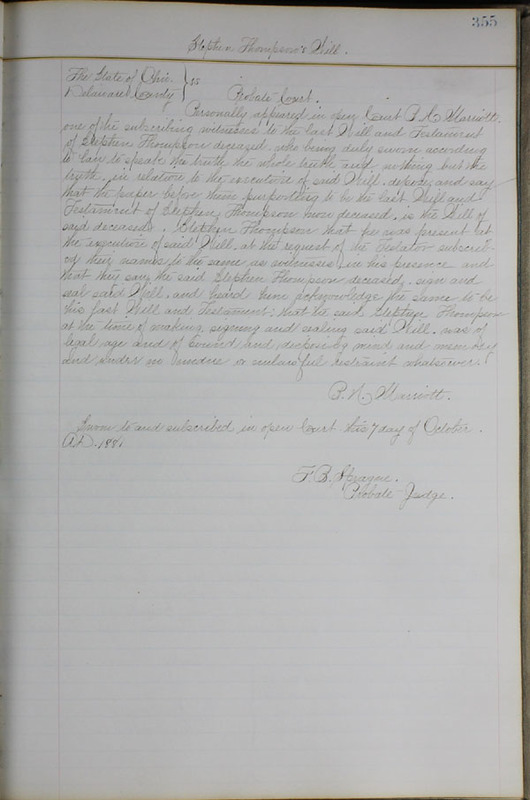 355
Stephen Thompson's Will.
The State of Ohio } ss
Delaware County Probate Court.
Personally appeared in open Court
one of the subscribing witnesses to the last Will and Testament
of Stephen Thompson deceased, who being duly sworn according
to law to speak the truth the whole truth and nothing but the
truth, in relation to the execution of said Will, depose and say
that the paper before them purporting to be the last Will and
Testament of Stephen Thompson now deceased, is the Will of
said deceased. Stephen Thompson that he was present at
the execution of said Will, at the request of the Testator subscrib-
ed their names to the same as witnesses in his presence and
that they saw the said Stephen Thompson deceased, sign and
seal said Will, and heard him acknowledge the same to be
his last Will and Testament; that the said Stephen Thompson
at the time of making, signing and sealing said Will, was of
legal age and of sound and disposing mind and memory
and under no undue or unlawful restraint whatsoever.
Marriott.
Sworn to and subscribed in open Court this 7 day of October.
A.D. 1881
F. B. Sprague.
Probate Judge.